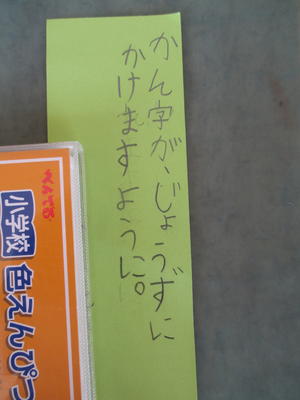 かん字が、じょうずに
かけますように。
ぺんてる
小学校
色えんぴつ